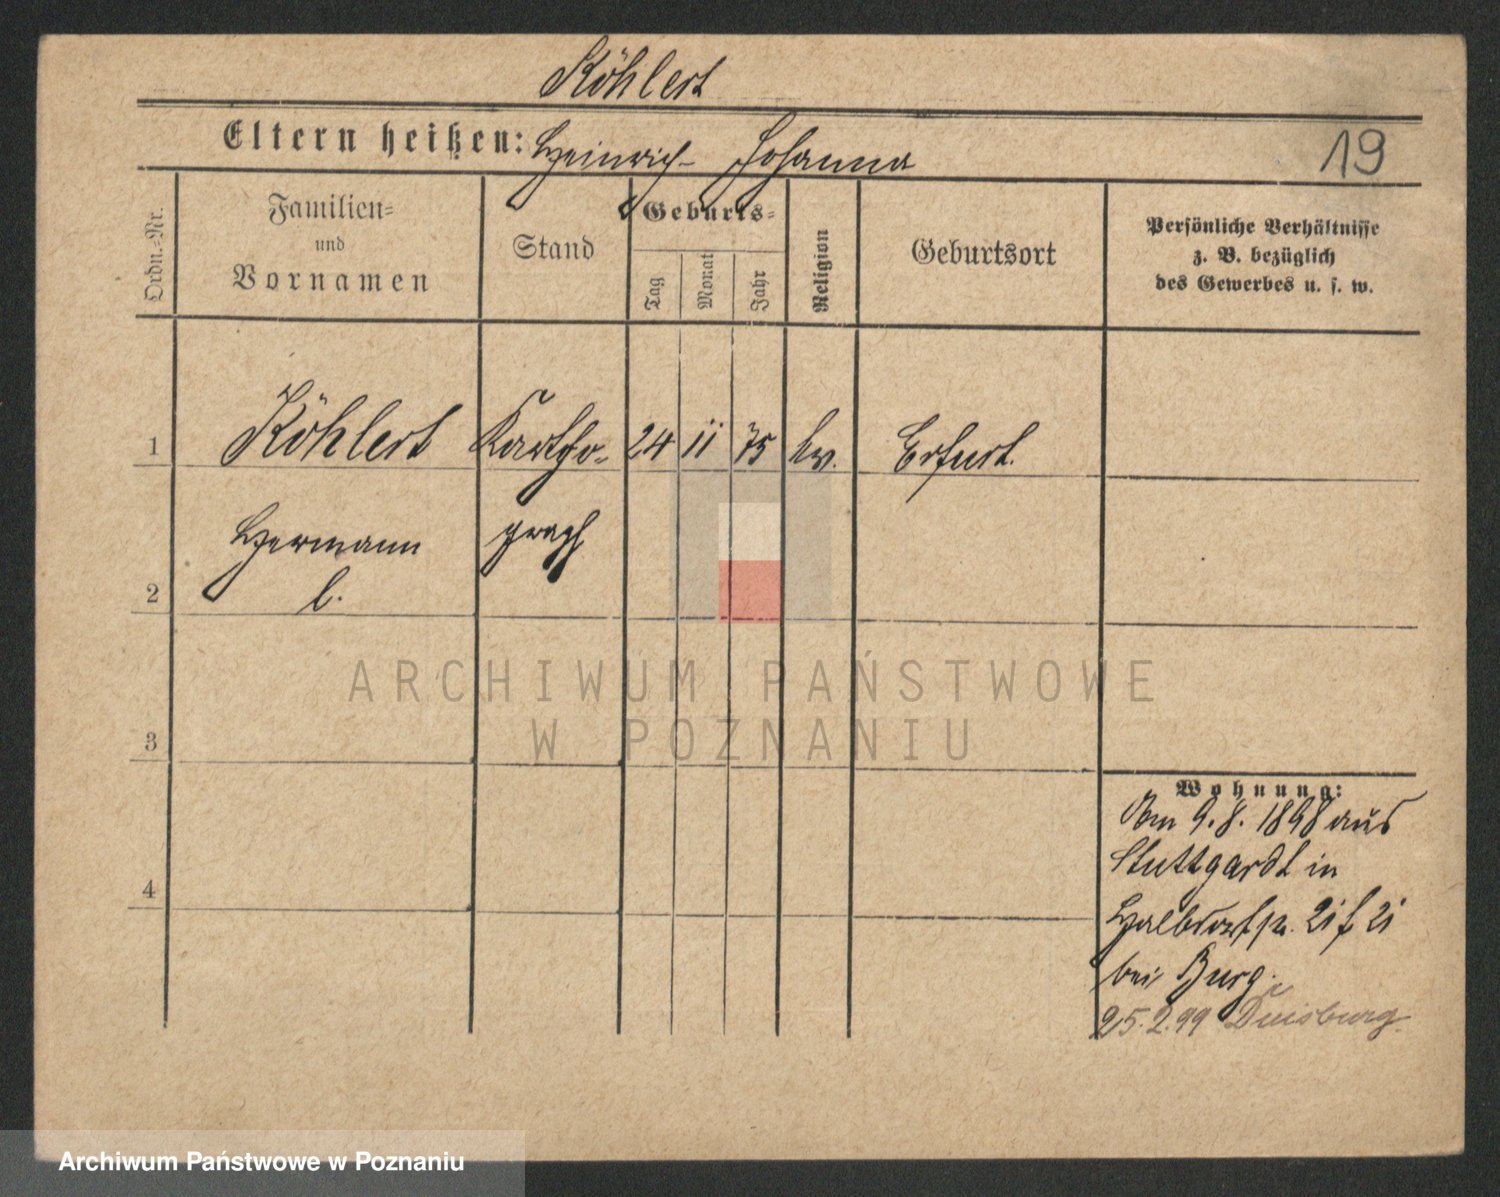 Köhlert
Eltern heißen: Heinrich - Johanna
19
Ordn.-Nr.
Familien-
und
Vornamen
Stand
Geburts-
Tag
Monat
Jahr
Religion
Geburtsort
Persönliche Verhältnisse
z. B. bezüglich
des Gewerbes u. s. w.
1 Köhlert Kartho- 24 11 75 ev. Erfurt.
Hermann graph
2 l.
3
4
Wohnung:
Am 9.8. 1898 aus
Stuttgardt in
Halbdorfstr.
bei Burg.
25.2.99 Duisburg.
ARCHIWUM PAŃSTWOWE
W POZNANIU
Archiwum Państwowe w Poznaniu